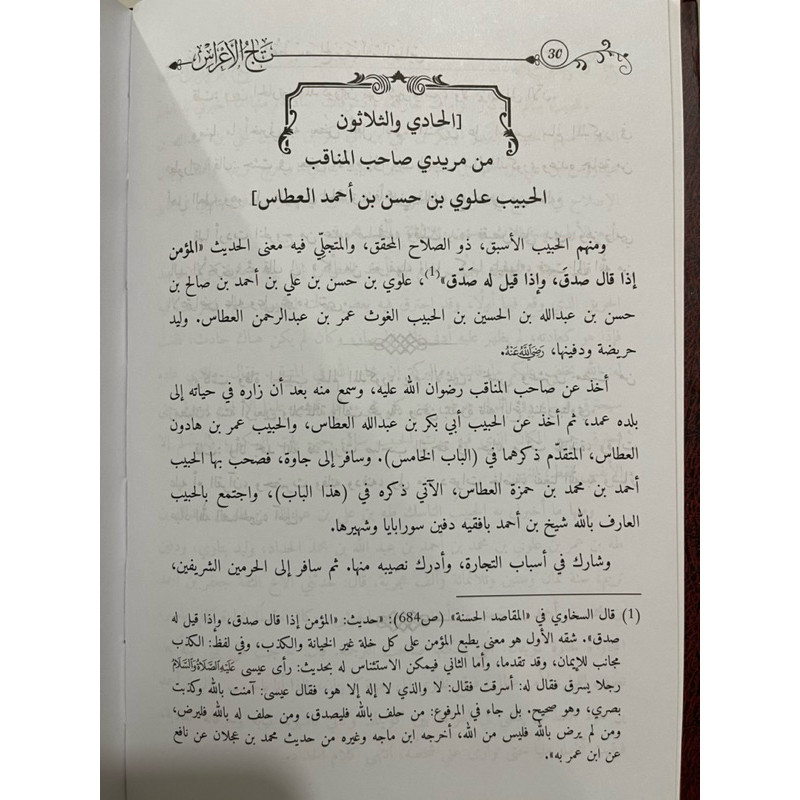 تاج الأعراس
30
[الحادي والثلاثون
من مريدي صاحب المناقب
الحبيب علوي بن حسن بن أحمد العطاس]
ومنهم الحبيب الأسبق، ذو الصلاح المحقق، والمتجلّي فيه معنى الحديث «المؤمن
إذا قال صدقَ، وإذا قيل له صَدّق»(1)، علوي بن حسن بن علي بن أحمد بن صالح بن
حسن بن عبدالله بن الحسين بن الحبيب الغوث عمر بن عبدالرحمن العطاس. وليد
حريضة ودفينها، رَضِيَ اللَّهُ عَنْهُ.
أخذ عن صاحب المناقب رضوان الله عليه، وسمع منه بعد أن زاره في حياته إلى
بلده عمد، ثم أخذ عن الحبيب أبي بكر بن عبدالله العطاس، والحبيب عمر بن هادون
العطاس، المتقدّم ذكرهما في (الباب الخامس). وسافر إلى جاوة، فصحب بها الحبيب
أحمد بن محمد بن حمزة العطاس، الآتي ذكره في (هذا الباب)، واجتمع بالحبيب
العارف بالله شيخ بن أحمد بافقيه دفين سورابايا وشهيرها.
وشارك في أسباب التجارة، وأدرك نصيبه منها. ثم سافر إلى الحرمين الشريفين،
(1) قال السخاوي في «المقاصد الحسنة» (ص684): «حديث: «المؤمن إذا قال صدق، وإذا قيل له
صدق». شقه الأول هو معنى يطبع المؤمن على كل خلة غير الخيانة والكذب، وفي لفظ: الكذب
مجانب للإيمان، وقد تقدما، وأما الثاني فيمكن الاستئناس له بحديث: رأى عيسى عَلَيْهِ الصَّلَاةُ وَالسَّلَامُ
رجلا يسرق فقال له: أسرقت فقال: لا والذي لا إله إلا هو، فقال عيسى: آمنت بالله وكذبت
بصري، وهو صحيح. بل جاء في المرفوع: من حلف بالله فليصدق، ومن حلف له بالله فليرض،
ومن لم يرض بالله فليس من الله، أخرجه ابن ماجه وغيره من حديث محمد بن عجلان عن نافع
عن ابن عمر به».